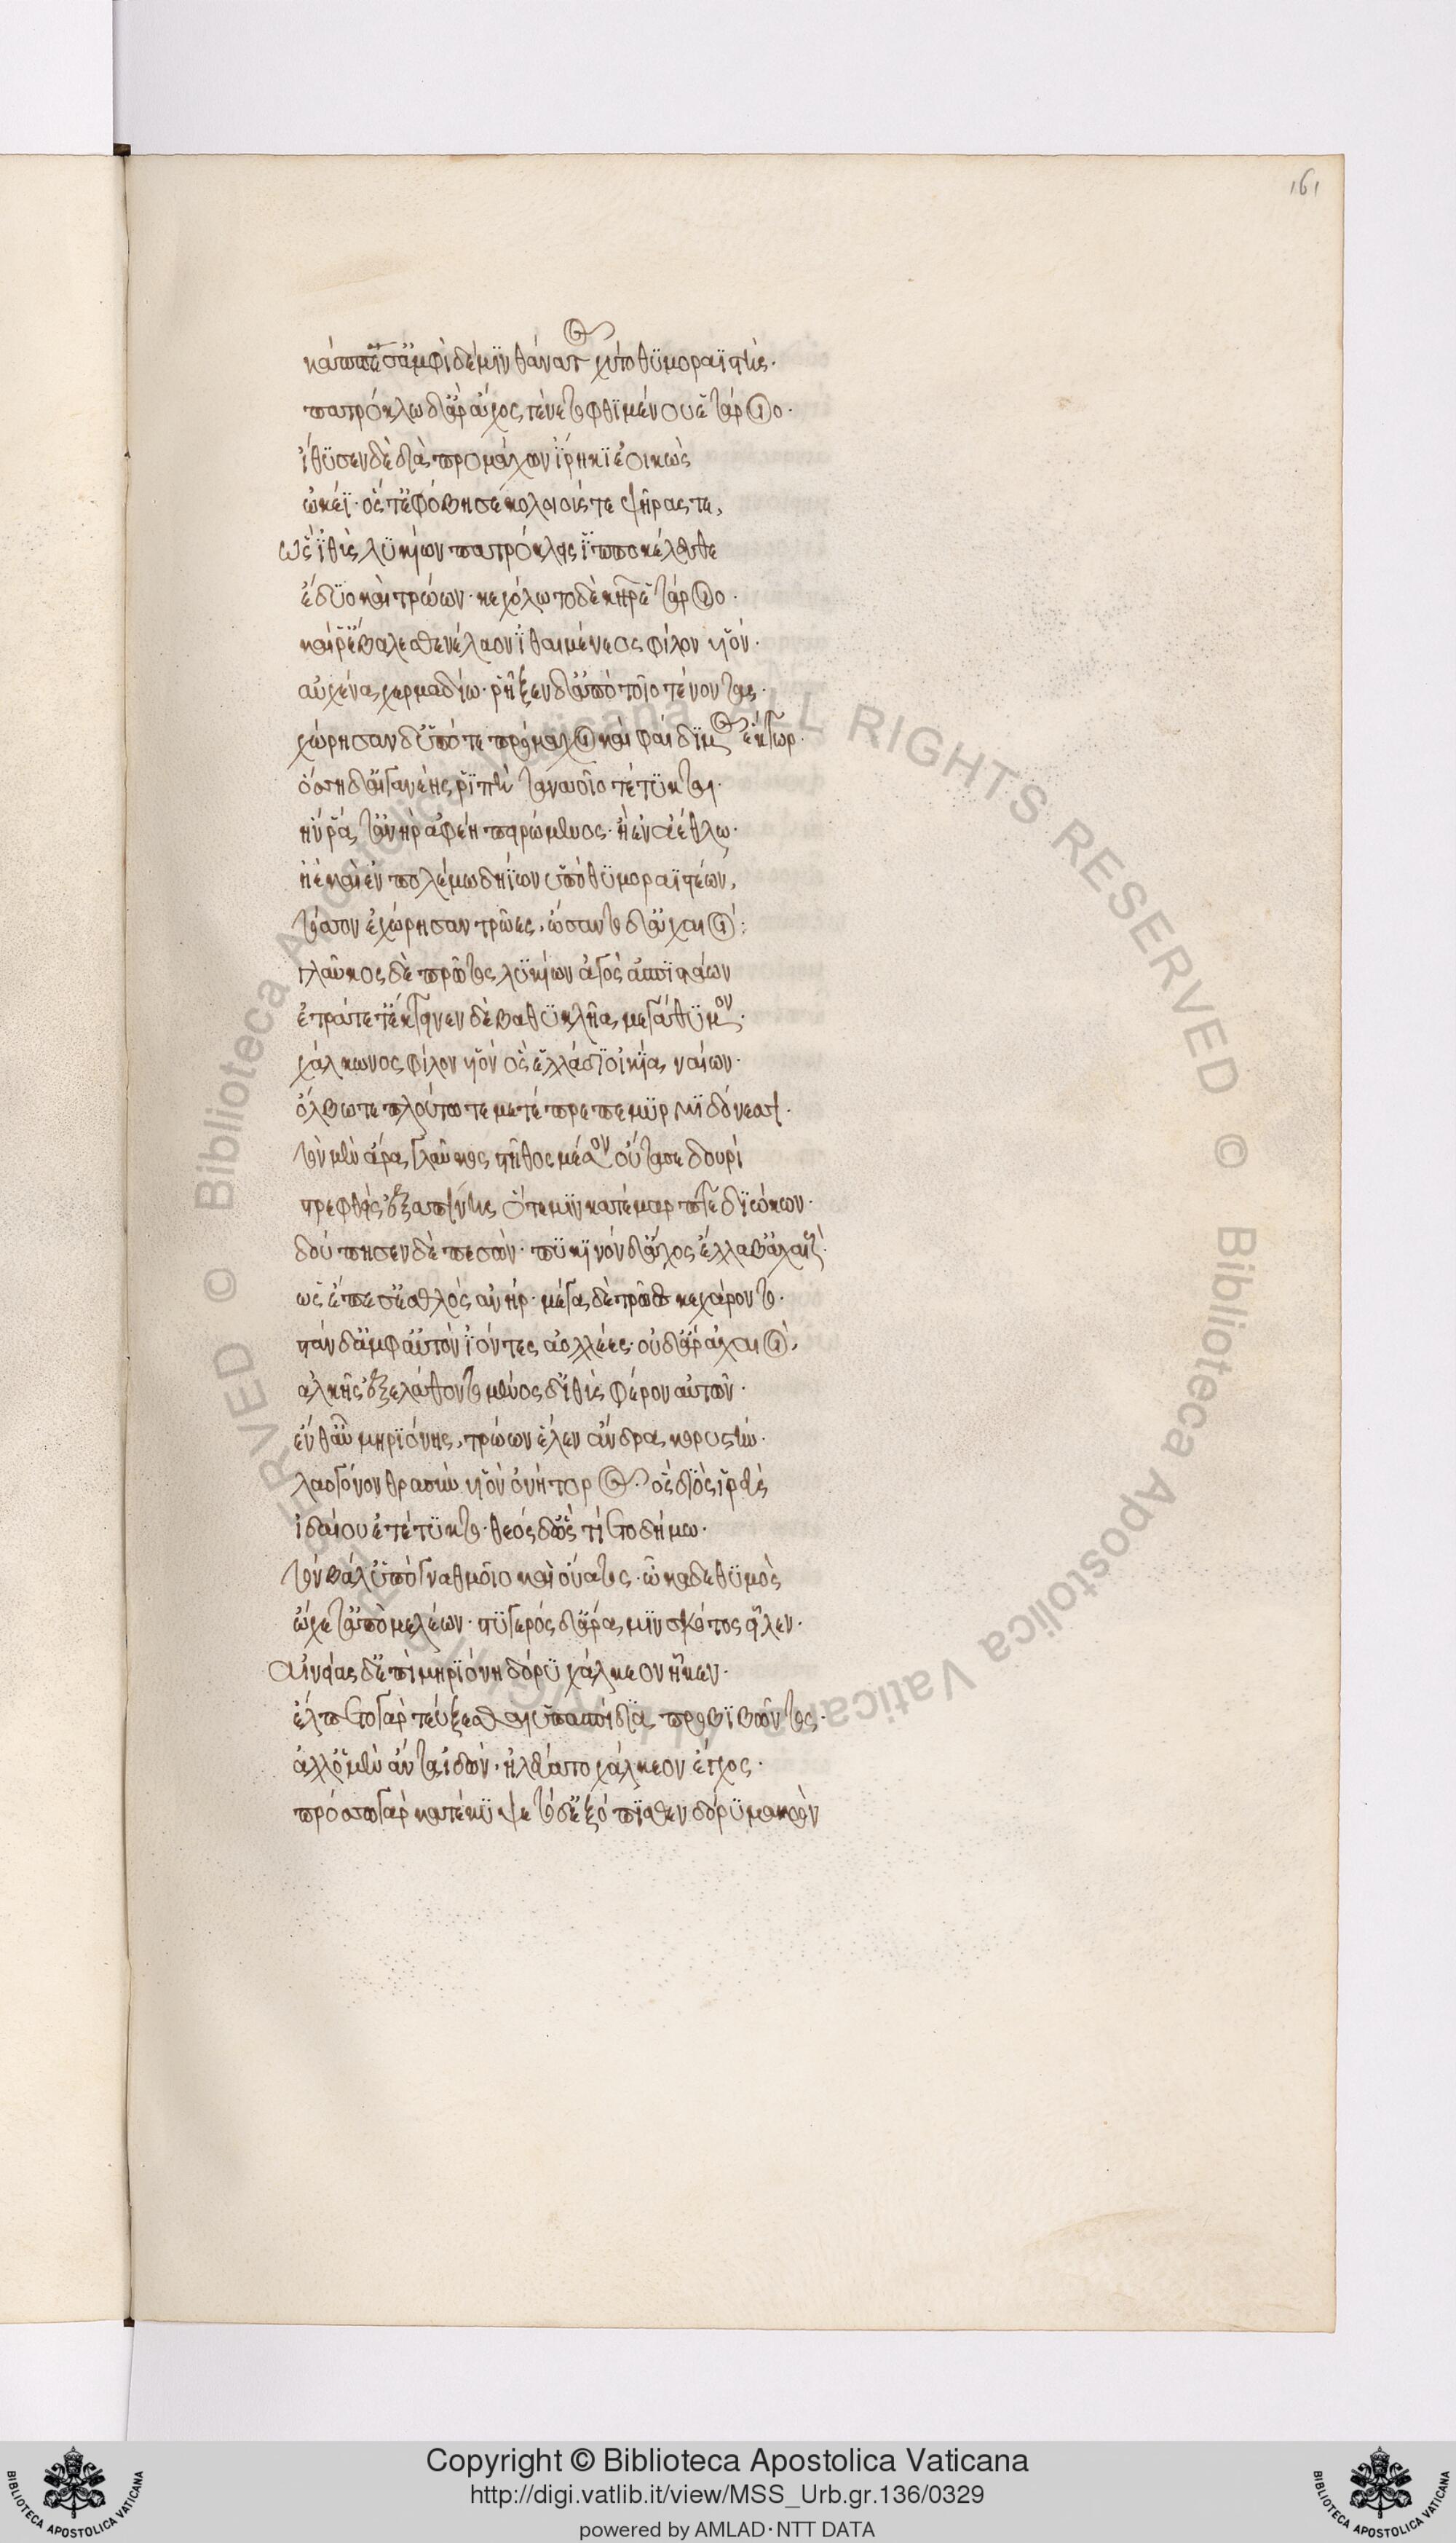 161
κάππεσ' ἀμφὶ δέ μιν θάνατος χύτο θυμοραϊστής.
πατρόκλω δ' ἄρ' ἄχος γένετο φθιμένου ἑτάροιο.
ἴθυσεν δὲ διὰ προμάχων ἴρηκι ἐοικὼς
ὠκέϊ. ὅς τ' ἐφόβησε κολοιούς τε ψῆρας τε,
ὣς ἰθὺς λυκίων πατρόκλεις ἱπποκέλευθε
ἔσσυο καὶ τρώων. κεχόλωσο δὲ κῆρ ἑτάροιο.
καί ῥ' ἔβαλε σθενέλαον ἰθαιμένεος φίλον υἱόν.
αὐχένα χερμαδίω. ῥῆξεν δ' ἀπὸ τοῖο τένοντας.
χώρησαν δ' ὑπό τε πρόμαχοι καὶ φαίδιμος ἕκτωρ.
ὅσση δ' αἰγανέης ῥιπὴ ταναοῖο τέτυκται.
ἥν ῥά τ' ἀνὴρ ἀφέη πειρώμενος. ἢ ἐν ἀέθλω.
ἠὲ καὶ ἐν πολέμω δηΐων ὕπο θυμοραϊστέων,
τόσσον ἐχώρησαν τρῶες, ὤσαντο δ' ἀχαιοί:
γλαῦκος δὲ πρῶτος λυκίων ἀγὸς ἀσπιστάων
ἐτράπετ' ἔκτεινεν δὲ βαθυκλῆα μεγάθυμον.
χάλκωνος φίλον υἱόν ὃς ἑλλάδι οἰκία ναίων.
ὄλβω τε πλούτω τε μετέπρεπε μυρμιδόνεσσι.
τὸν μὲν ἄρα γλαῦκος στῆθος μέσον οὔτασε δουρί
στρεφθεὶς ἐξαπίνης ὅτε μιν κατέμαρπτε διώκων.
δούπησεν δὲ πεσών. πυκινόν δ' ἄχος ἔλλαβ' ἀχαιούς.
ὡς ἔπεσ' ἐσθλὸς ἀνήρ. μέγα δὲ τρῶες κεχάροντο.
στὰν δ' ἀμφ' αὐτὸν ἰόντες ἀολλέες. οὐδ' ἄρ' ἀχαιοὶ,
ἀλκῆς ἐξελάθοντο μένος δ' ἰθὺς φέρον αὐτῶν.
ἔνθ' αὖ μηριόνης, τρώων ἕλεν ἄνδρα κορυστὴν.
λαόγονον θρασὺν υἱὸν ὀνήτορος. ὃς διὸς ἱρεὺς
ἰδαίου ἐτέτυκτο. θεὸς δ' ὣς τίετο δήμω.
τὸν βάλ' ὑπὸ γναθμοῖο καὶ οὔατος. ὦκα δὲ θυμὸς
ὤχετ' ἀπὸ μελέων. στυγερὸς δ' ἄρα μιν σκότος εἷλεν.
αἰνείας δ' ἐπὶ μηριόνη δόρυ χάλκεον ἧκεν.
ἔλπετο γὰρ τεύξεσθαι ὑπασπίδια προβιβῶντος.
ἀλλ' ὃ μὲν ἄντα ἰδὼν, ἠλεύατο χάλκεον ἔγχος.
πρόσσω γὰρ κατέκυψε τὸ δ' ἐξόπιθεν δόρυ μακρὸν
Copyright © Biblioteca Apostolica Vaticana
http://digi.vatlib.it/view/MSS_Urb.gr.136/0329
powered by AMLAD·NTT DATA